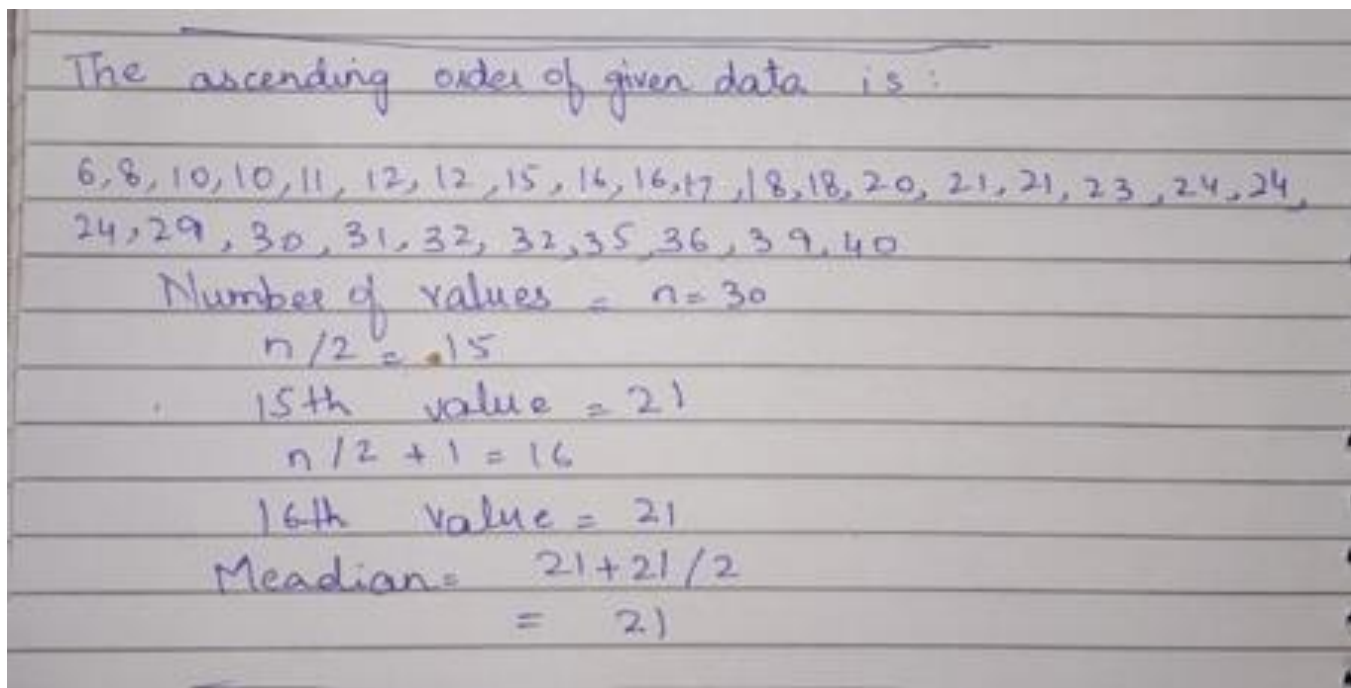 The ascending order of given data is :
6, 8, 10, 10, 11, 12, 12, 15, 16, 16, 17, 18, 18, 20, 21, 21, 23, 24, 24,
24, 29, 30, 31, 32, 32, 35, 36, 39, 40
Number of values = n = 30
n/2 = 15
15th value = 21
n/2 + 1 = 16
16th value = 21
Meadian = 21+21/2
= 21